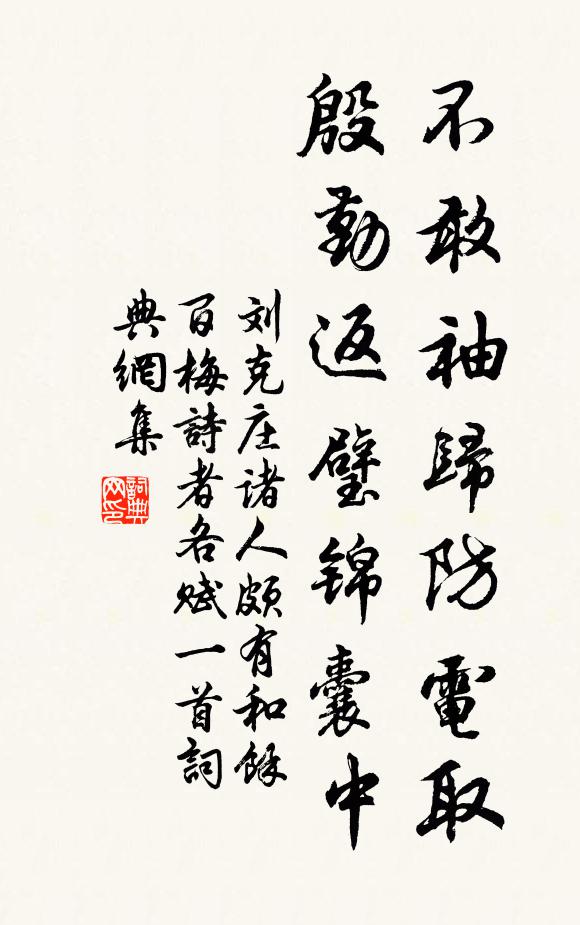 不敢袖歸防電取
殷勤返璧錦囊中
刘克庄诸人頗有和餘
百梅詩者各赋一首詞
典網集
詞典网印